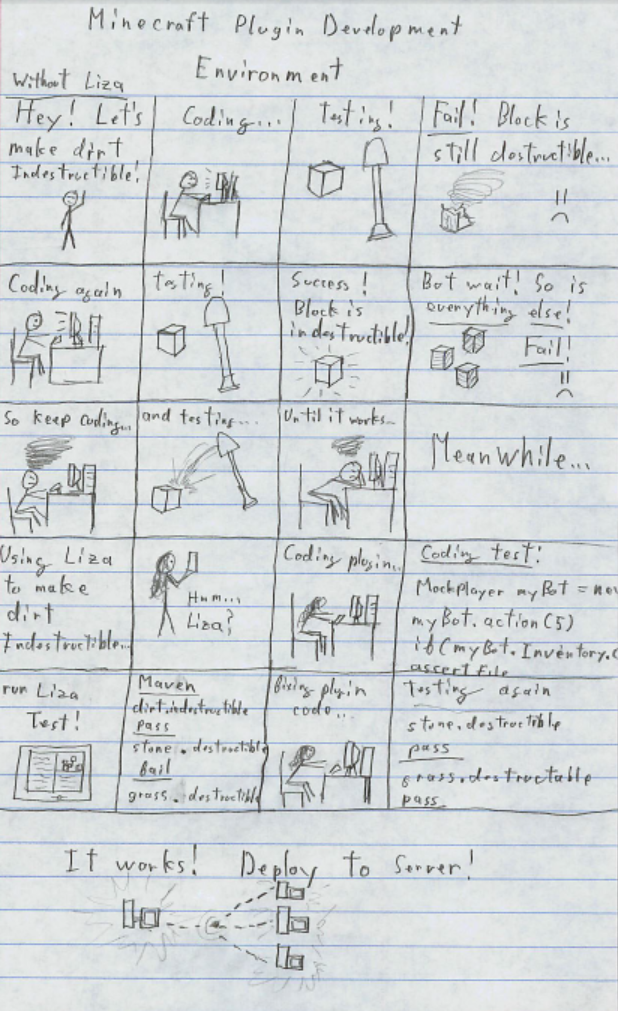 Minecraft Plugin Development
Environment
Without Liza
Hey! Let's
make dirt
Indestructible!
Coding...
Testing!
Fail! Block is
still destructible...
Coding again
testing!
Success!
Block is
indestructible!
But wait! So is
everything else!
Fail!
So keep coding...
and testing...
Until it works..
Meanwhile...
Using Liza
to make
dirt
Indestructible...
Humm...
Liza?
Coding plugin..
Coding test:
MockPlayer myBot = new
myBot.action(5)
if(myBot.Inventory.c
assert File
run Liza
Test!
Maven
dirt.indestructible
pass
stone.destructible
fail
grass.destructible
fixing plugin
code...
testing again
stone.destructible
pass
grass.destructable
pass
It works! Deploy to Server!